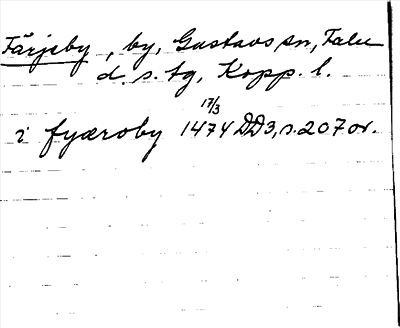 Färjeby, by, Gustavs sn, Falu
d. s. tg, Kopp. l.
17/3
i fyæroby 1474 DD3, s. 207 or.